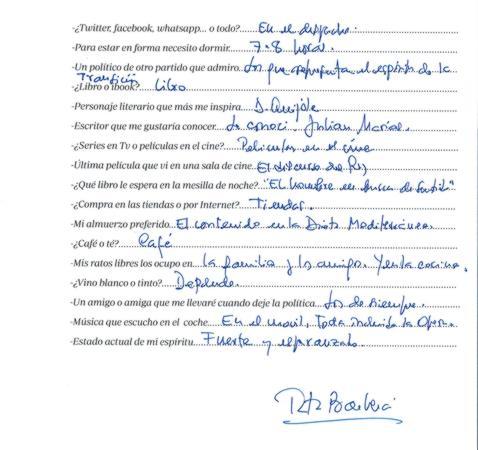 -¿Twitter, facebook, whatsapp... o todo?.... En el despacho.
-Para estar en forma necesito dormir.... 7-8 horas.
-Un político de otro partido que admiro.. Los que representan el espíritu de la
Transición
-¿Libro o ibook?.... Libro
-Personaje literario que más me inspira.... D. Quijote
-Escritor que me gustaría conocer.. Lo conocí. Julian Marías.
-¿Series en Tv o películas en el cine?.. Películas en el cine
-Última película que vi en una sala de cine.. El discurso del Rey
-¿Qué libro le espera en la mesilla de noche?.. "El hombre en busca de sentido"
-¿Compra en las tiendas o por Internet?.. Tiendas.
-Mi almuerzo preferido.. El contenido en la Dieta Mediterránea.
-¿Café o té?.... Café
-Mis ratos libres los ocupo en.. la familia y los amigos. Y en la cocina.
-¿Vino blanco o tinto?.. Depende.
-Un amigo o amiga que me llevaré cuando deje la política.... Los de siempre.
-Música que escucho en el coche.... En el movil, Toda incluida la Opera.
-Estado actual de mi espíritu.... Fuerte y esperanzado.
Rita Barberá